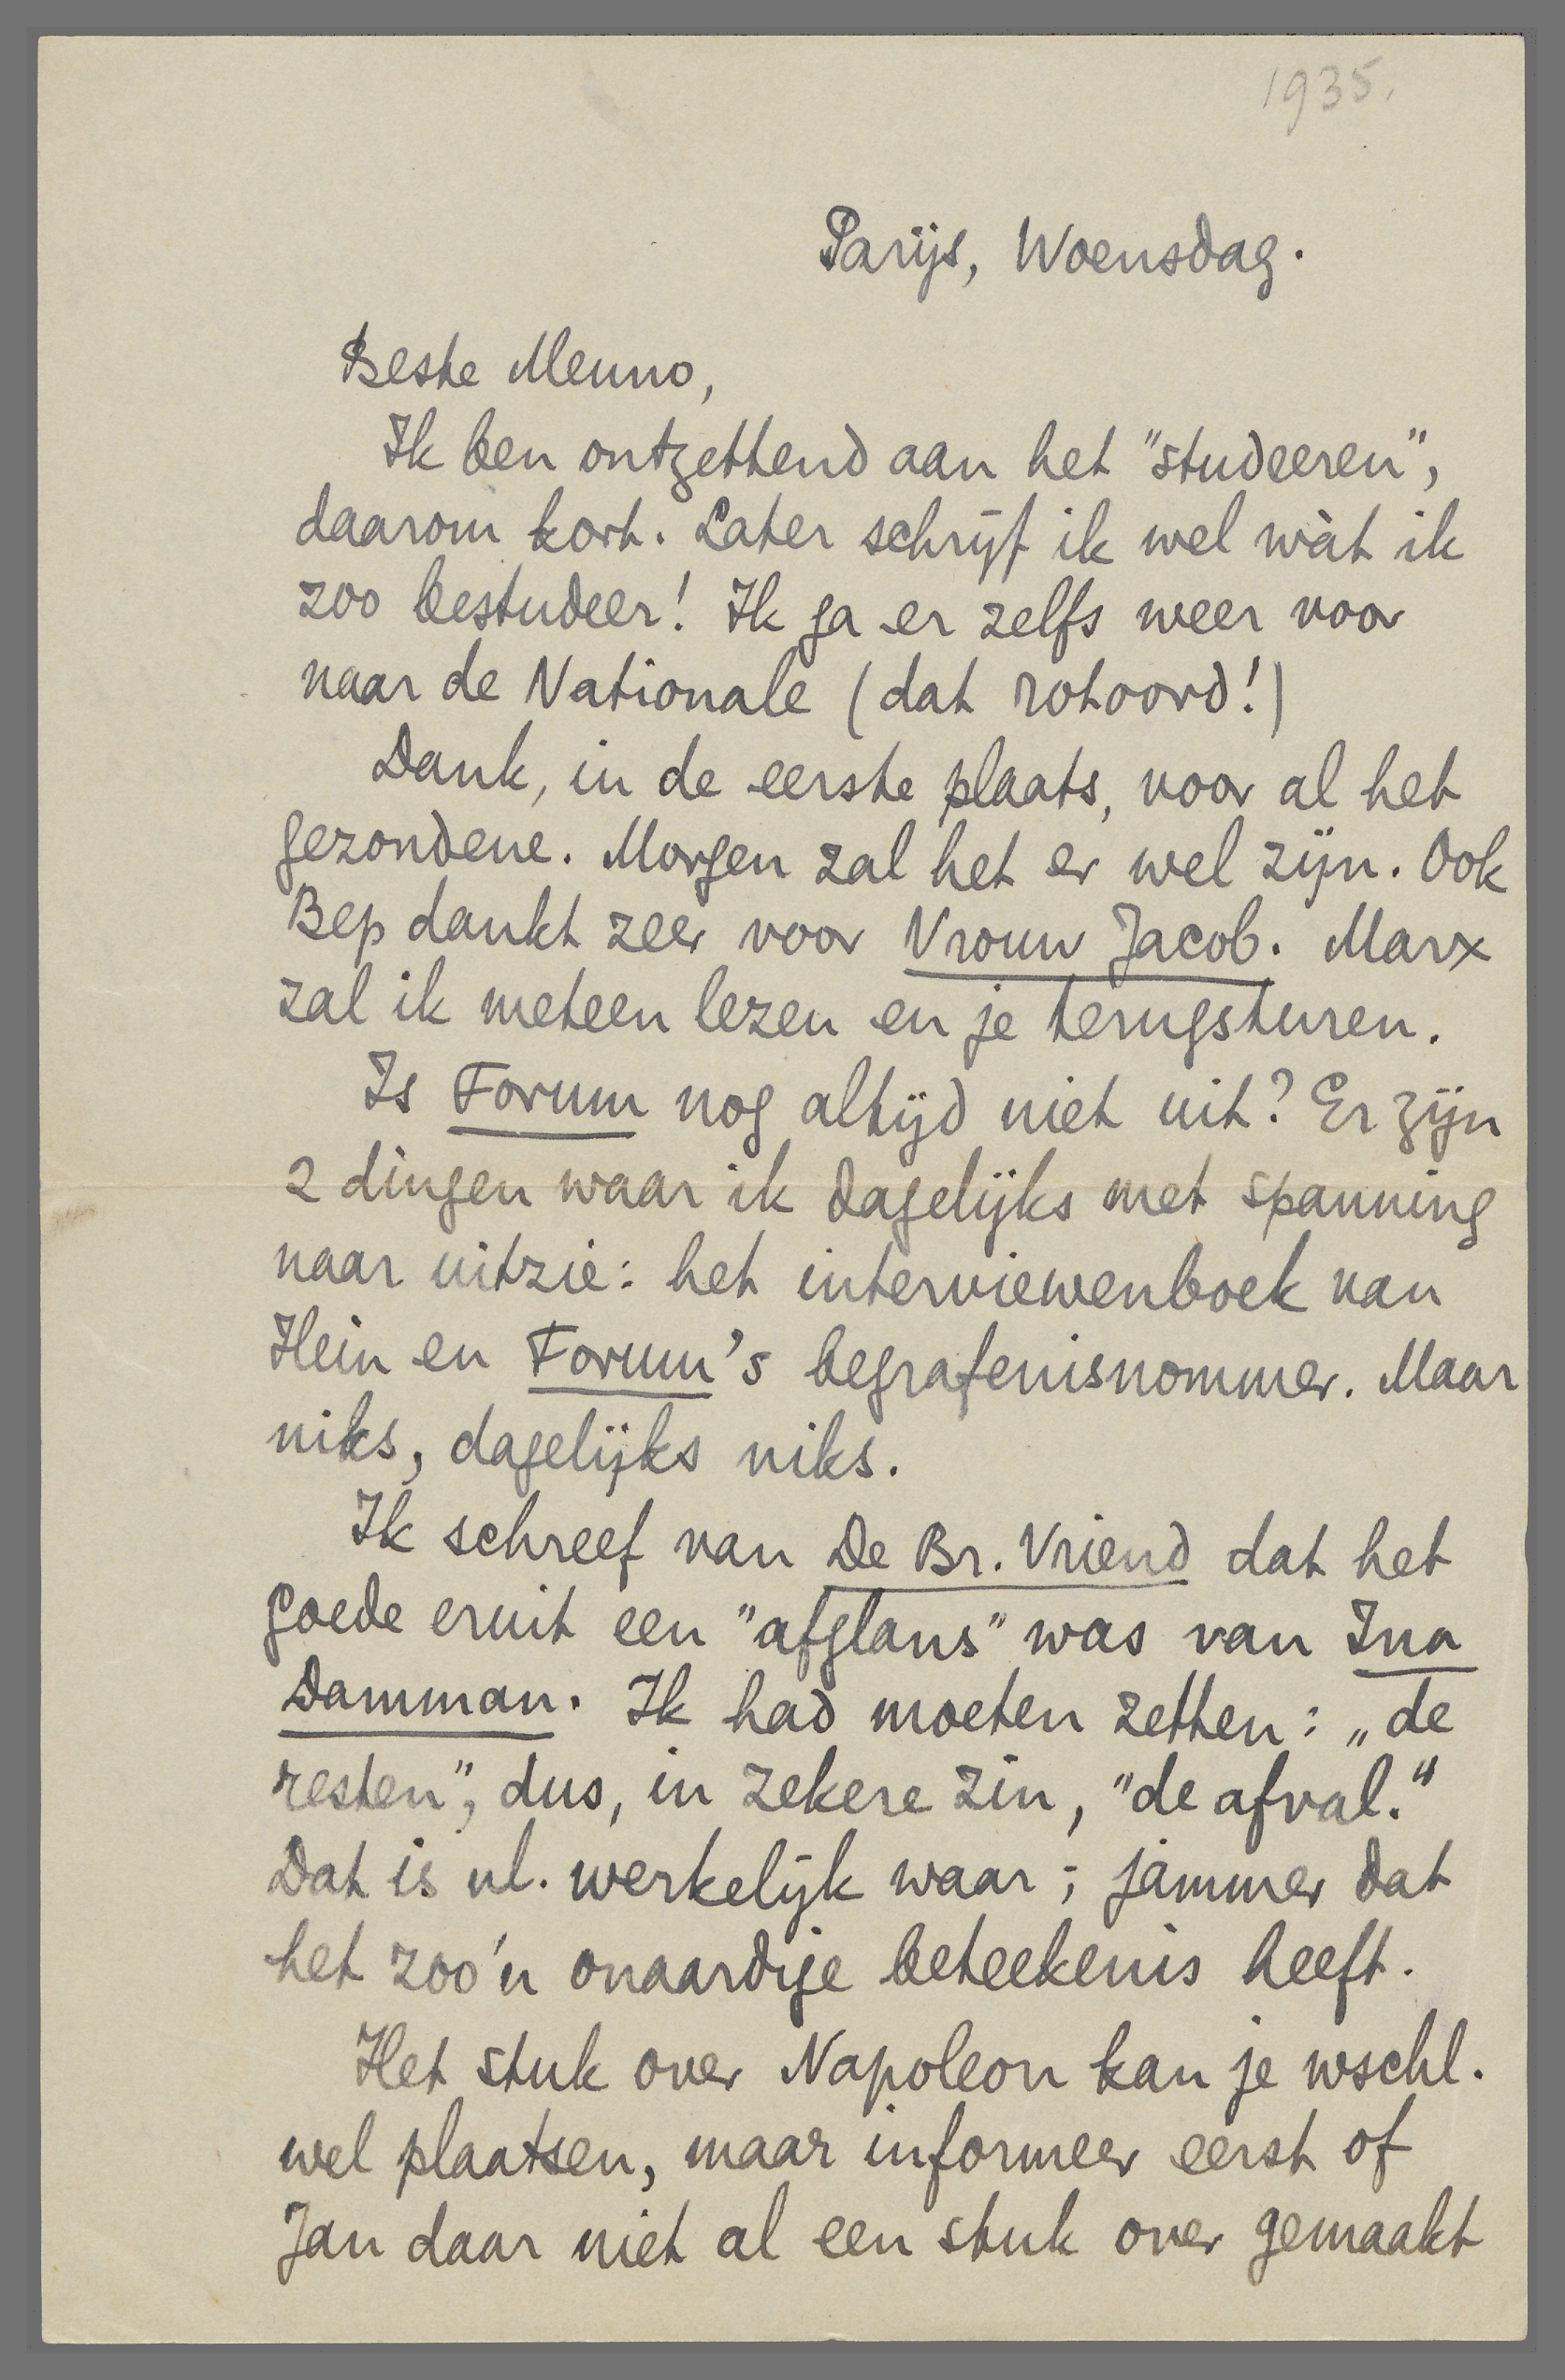 1935.
Parijs, Woensdag.
Beste Menno,
Ik ben ontzettend aan het "studeeren",
daarom kort. Later schrijf ik wel wàt ik
zoo bestudeer! Ik ga er zelfs weer voor
naar de Nationale (dat rotoord!)
Dank, in de eerste plaats, voor al het
gezondene. Morgen zal het er wel zijn. Ook
Bep dankt zeer voor Vrouw Jacob. Marx
zal ik meteen lezen en je terugsturen.
Is Forum nog altijd niet uit? Er zijn
2 dingen waar ik dagelijks met spanning
naar uitzie: het interviewenboek van
Hein en Forum's begrafenisnommer. Maar
niks, dagelijks niks.
Ik schreef van De Br. Vriend dat het
goede eruit een "afglans" was van Ina
Damman. Ik had moeten zetten: „de
resten", dus, in zekere zin, "de afval."
Dat is nl. werkelijk waar; jammer dat
het zoo'n onaardige beteekenis heeft.
Het stuk over Napoleon kan je wschl.
wel plaatsen, maar informeer eerst of
Jan daar niet al een stuk over gemaakt